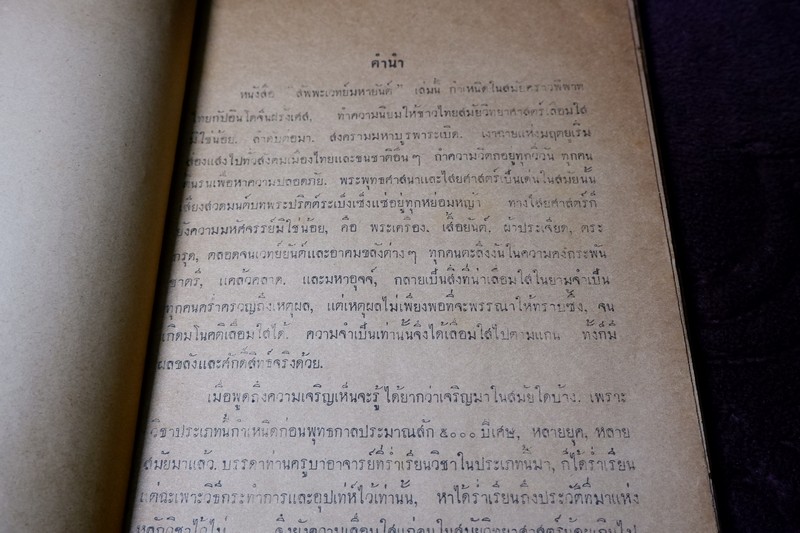 คำนำ
หนังสือ "สัพพะเวทย์มหายันต์" เล่มนี้ กำหนิดในสมัยคราวพิพาท
ไทยกับอินโดจีนฝรั่งเศส. ทำความนิยมให้ชาวไทยสมัยวิทยาศาสตร์เลื่อมใส
มิใช่น้อย. ลำดับต่อมา. สงครามมหาบูรพาระเบิด. เงาทายแห่งมฤตยูเริ่ม
ส่องแสงไปทั่วสังคมเมืองไทยและชนชาติอื่นๆ ทำความวิตกอยู่ทุกวี่วัน ทุกคน
ดิ้นรนเพื่อหาความปลอดภัย. พระพุทธศาสนาและไสยศาสตร์เป็นเด่นในสมัยนั้น
เสียงสวดมนต์บทพระปริตต์ระเบ็งเซ็งแซ่อยู่ทุกหย่อมหญ้า ทางไสยศาสตร์ก็
ยังความมหัศจรรย์มิใช่น้อย, คือ พระเครื่อง. เสื้อยันต์. ผ้าประเจียด, ตระ
กรุด, ตลอดจนเวทย์ยันต์และอาคมขลังต่างๆ ทุกคนตะลึงงันในความคงกระพัน
ชาตรี, แคล้วคลาด. และมหาอุจจ์, กลายเป็นสิ่งที่น่าเลื่อมใสในยามจำเป็น
ทุกคนคร่ำครวญถึงเหตุผล, แต่เหตุผลไม่เพียงพอที่จะพรรณาให้ทราบซึ้ง, จน
เกิดมโนคติเลื่อมใสได้. ความจำเป็นเท่านั้นจึงได้เลื่อมใสไปตามแกน ทั้งก็มี
ผลขลังและศักดิ์สิทธ์จริงด้วย.
เมื่อพูดถึงความเจริญเห็นจะรู้ได้ยากว่าเจริญมาในสมัยใดบ้าง. เพราะ
วิชาประเภทนี้กำหนิดก่อนพุทธกาลประมาณสัก ๕๐๐๐ ปีเศษ, หลายยุค, หลาย
สมัยมาแล้ว. บรรดาท่านครูบาอาจารย์ที่ร่ำเรียนวิชาในประเภทนี้มา, ก็ได้ร่ำเรียน
แต่ฉะเพาะวิธีกระทำการและอุปเท่ห์ไว้เท่านั้น, หาได้ร่ำเรียนถึงประวัติที่มาแห่ง
หลักวิชาไว้ไม่ จึงยังความเลื่อมใสแก่คนในสมัยวิทยาศาสตร์น้อยเกินไป